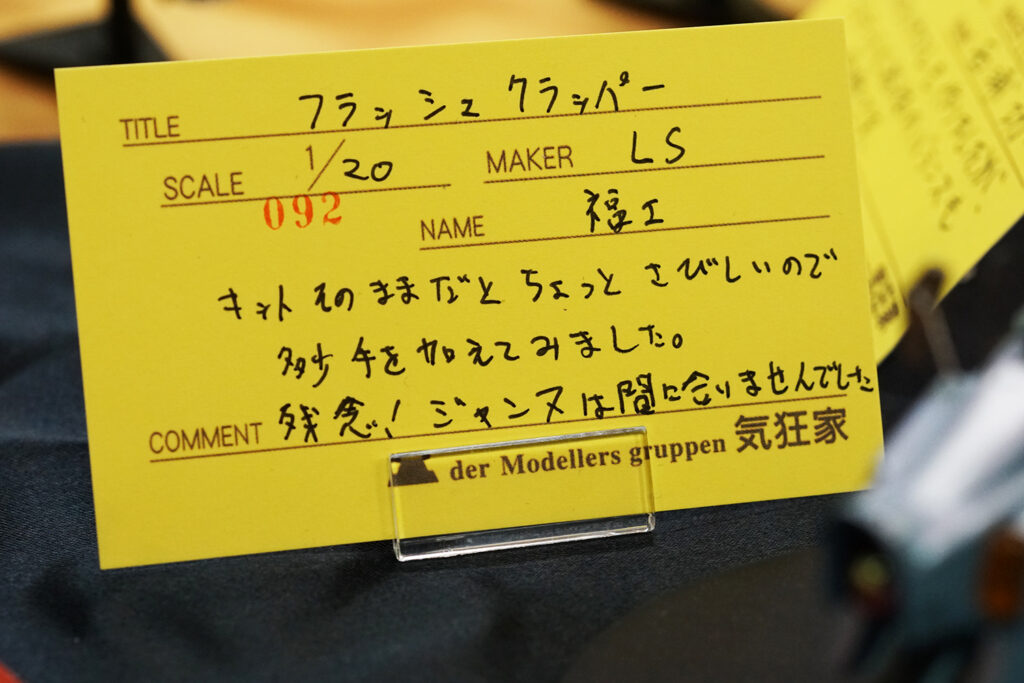 TITLE フラッシュ クラッパー
SCALE 1/20 MAKER LS
092
NAME 福エ
キットそのままだとちょっとさびしいので
多少手を加えてみました。
COMMENT 残念!ジャンヌは間に合いませんでした
der Modellers gruppen 気狂家